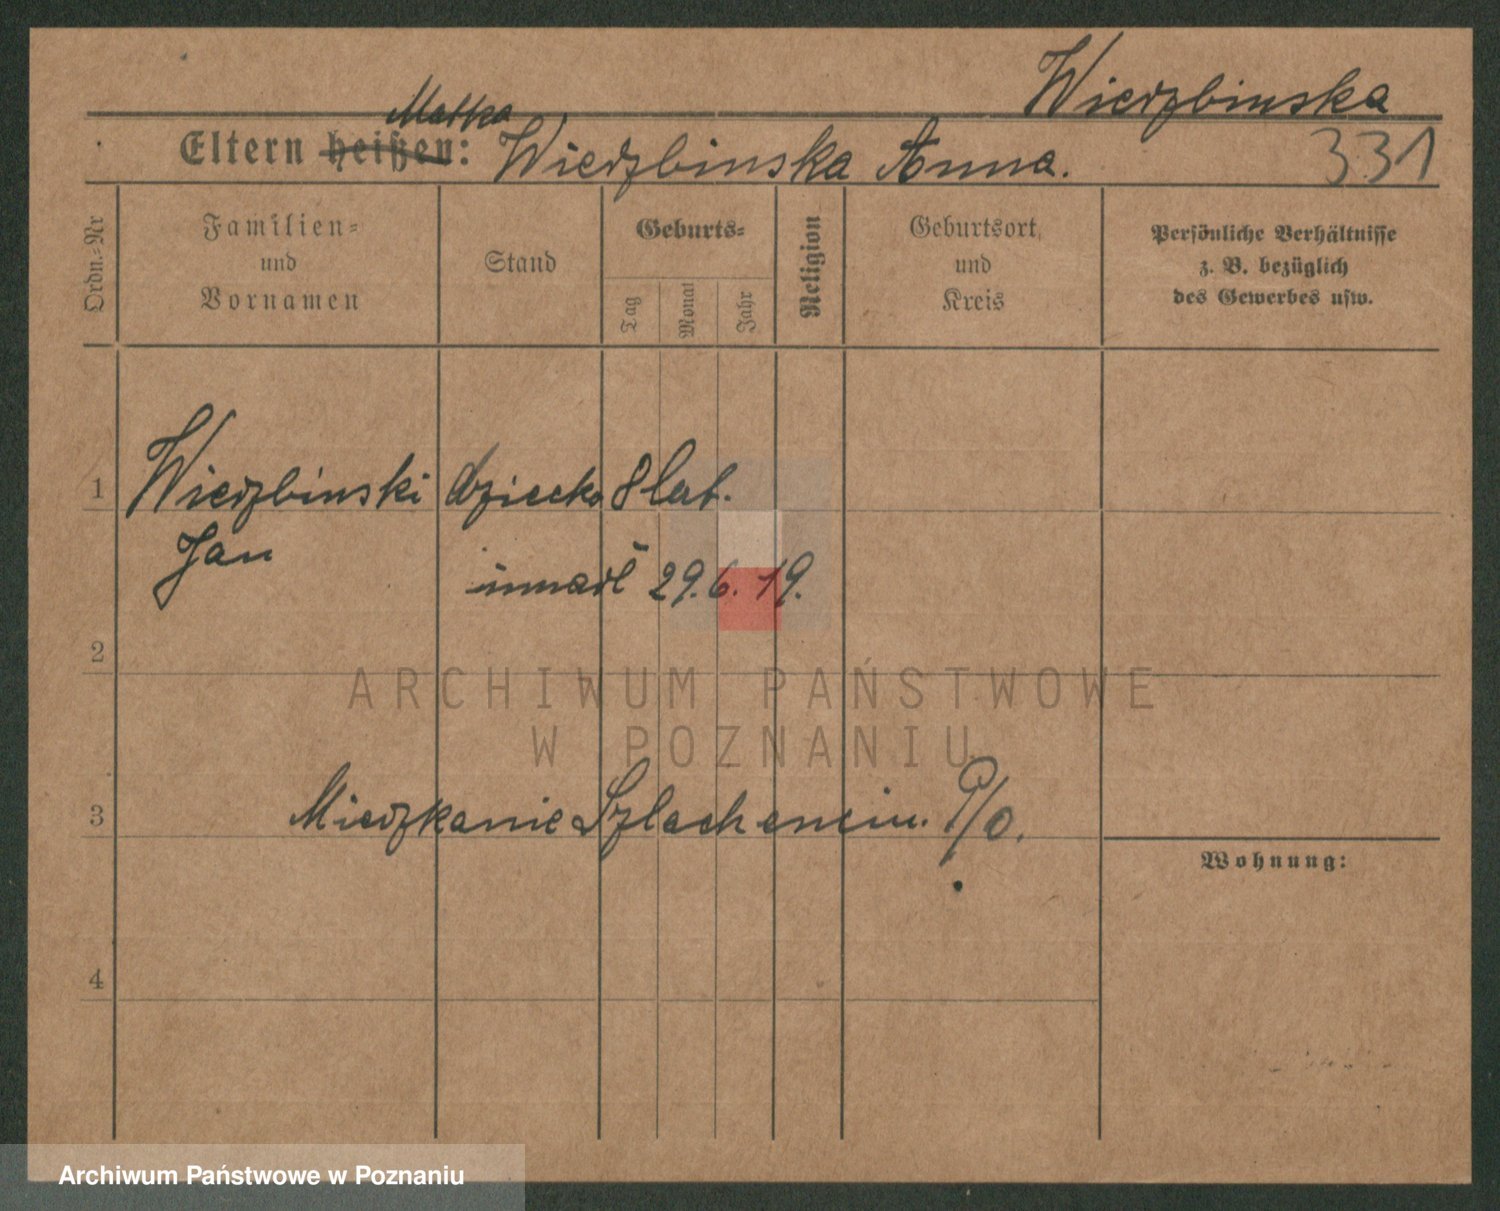 Wierzbinska
Matka
Eltern heißen: Wierzbinska Anna.
331
Ordn.-Nr
Familien-
und
Vornamen
Stand
Geburts-
Tag
Monat
Jahr
Religion
Geburtsort
und
Kreis
Persönliche Verhältnisse
z. B. bezüglich
des Gewerbes usw.
1 Wierzbinski dziecko 8 lat.
Jan
umarł 29.6.19.
2
ARCHIWUM PAŃSTWOWE
W POZNANIU
3 Mierzkanie Szlachencin.
Wohnung:
4
Archiwum Państwowe w Poznaniu